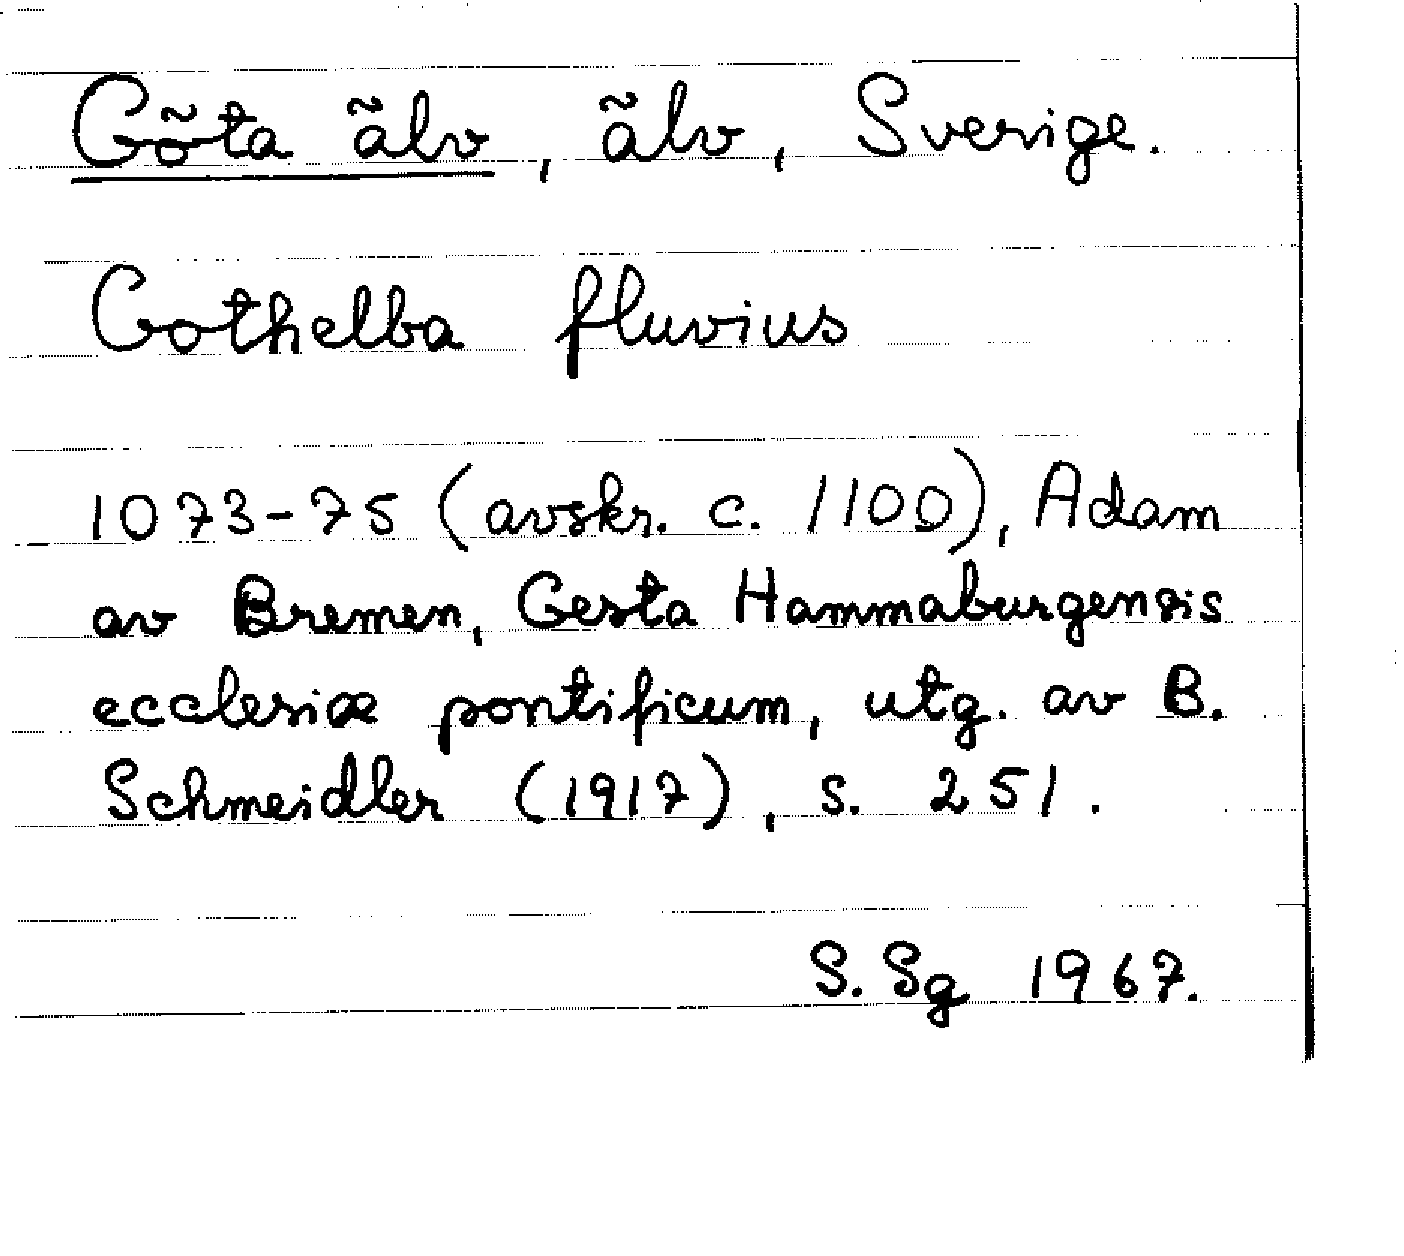 Göta älv, älv, Sverige.
Gothelba fluvius
1073-75 (avskr. c. 1100), Adam
av Bremen, Gesta Hammaburgensis
ecclesiæ pontificum, utg. av B.
Schmeidler (1917), s. 251.
S. Sg 1967.